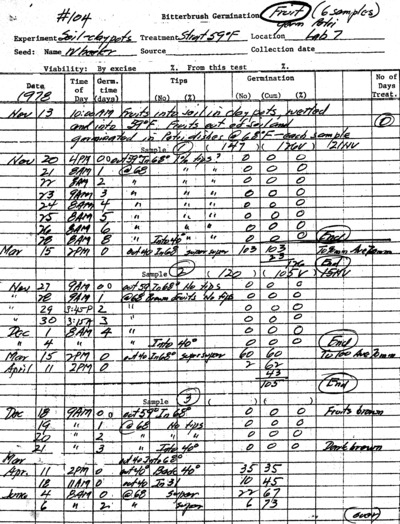 #104 Bitterbrush Germination Fruit (6 samples)
Experiment Soil-clay pots Treatment Strat 59°F Location Lab 7
Seed: Name Source Collection date
Viability: By excise % From this test %
Date Time of Day Germ. time (days) Tips (No) (%) Germination (No) (Cum) (%) No of Days Treat.
1978
Nov 13 10:00AM Fruits into soil in clay pots, wetted
and into 59°F. Fruits out of soil and
germinated in Petri dishes @ 68°F - each sample
Sample 1 ( 147 ) ( 126V ) 21NV
Nov 20 4PM 0 out 59° In 68° 1% tips? 0 0 0
21 8AM 1 @ 68 " " 0 0 0
22 8AM 2 " " " 0 0 0
23 9AM 3 " " " 0 0 0
24 8AM 4 " " " 0 0 0
25 8AM 5 " " " 0 0 0
26 8AM 6 " " " 0 0 0
28 8AM 8 Into 40° " 0 0 0 End
Mar 15 2PM 0 out 40 In 68 super super 103 103
23
126 End
Sample 2 ( 120 ) ( 105V ) 15NV
Nov 27 9AM 0 out 59 In 68° No tips 0 0 0
" 28 9AM 1 @ 68 Brown fruits No tips 0 0 0
" 29 3:45P 2 " " 0 0 0
" 30 3:15P 3 " " 0 0 0
Dec 1 8AM 4 " " 0 0 0
" 4 " Into 40° 0 0 0 End
Mar 15 2PM 0 out 40 In 68° super super 60 60
April 11 2PM 0 2 62
43
105 End
Sample 3 ( ) ( )
Dec 18 9AM 0 out 59° In 68° 0 0 0 Fruits brown
19 " 1 @ 68 No tips 0 0 0
20 " 2 " " " 0 0 0
21 " 3 Into 40° 0 0 0 Dark brown
Mar out 40 Into 68°
Apr. 11 2PM 0 out 40° Back 40° 35 35
18 11AM 0 out 40 In 31 10 45
June 4 8AM 0 @ 68 super 22 67
6 " 2 " super 6 73
(over)